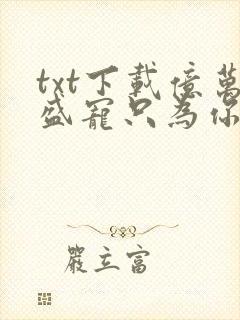 txt下載億萬
盛寵只為你
嚴立富